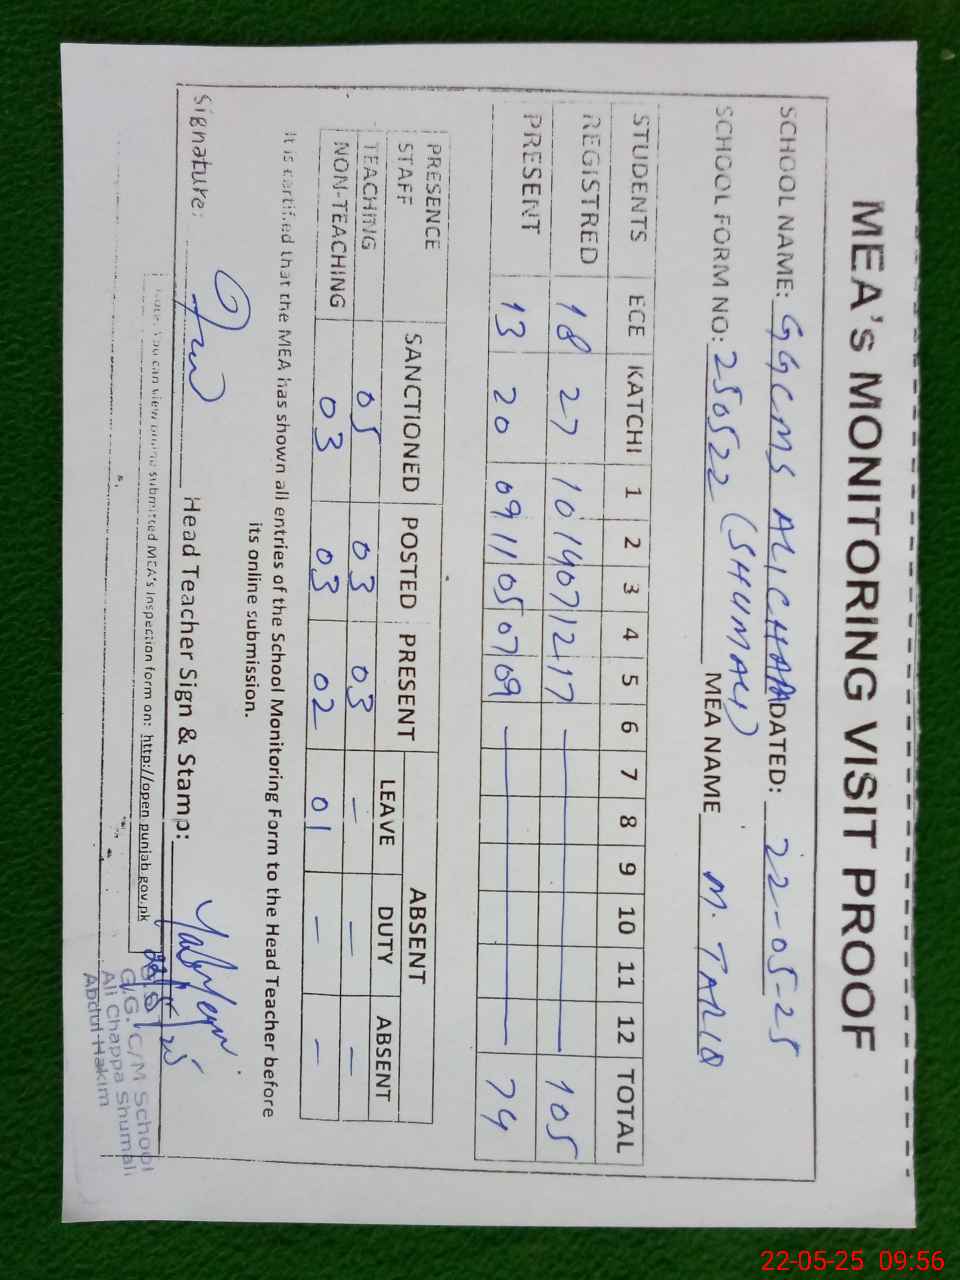 MEA's MONITORING VISIT PROOF
SCHOOL NAME: GGCMS ALICHAPA DATED: 22-05-25
(SHUMALI)
SCHOOL FORM NO: 250522 MEA NAME M. TARIQ
STUDENTS ECE KATCHI 1 2 3 4 5 6 7 8 9 10 11 12 TOTAL
REGISTRED 18 27 10 14 07 12 17 — 105
PRESENT 13 20 09 11 05 07 09 — 74
PRESENCE STAFF SANCTIONED POSTED PRESENT ABSENT
LEAVE DUTY ABSENT
TEACHING 05 03 03 — — —
NON-TEACHING 03 03 02 01 — —
It is certified that the MEA has shown all entries of the School Monitoring Form to the Head Teacher before
its online submission.
Signature: Head Teacher Sign & Stamp:
22/5/25
You can view online submitted MEA's inspection form on: http://open.punjab.gov.pk
G.G. C/M School
Ali Chappa Shumali
Abdul Hakim
22-05-25 09:56